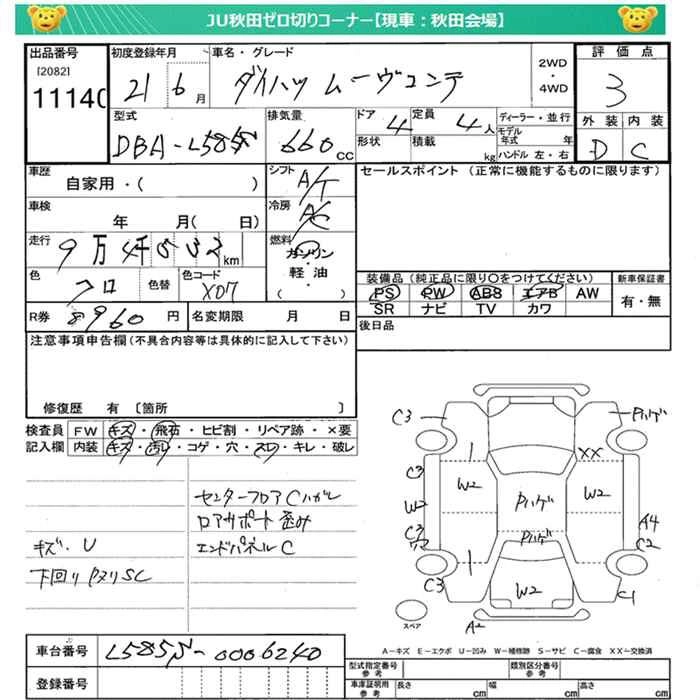 JU秋田ゼロ切りコーナー【現車：秋田会場】
出品番号
[2082]
1114
初度登録年月
21 6月
車名・グレード
ダイハツ ムーヴコンテ
2WD
・
4WD
評価点
3
外装 内装
D C
型式
DBA-L585S
排気量
660 CC
ドア 4
定員 4人
形状
積載 kg
ディーラー・並行
モデル年式 年
ハンドル 左・右
車歴
自家用・( )
シフト A/T
セールスポイント (正常に機能するものに限ります)
車検
年 月( 日)
冷房 A/C
走行 9万4千532km
燃料 ガソリン
軽油
・
( )
色 クロ
色替
色コード X07
装備品 (純正品に限り○をつけてください)
PS PW ABS エアB AW
SR ナビ TV カワ
新車保証書
有・無
R券 8960円
名変期限 月 日
後日品
注意事項申告欄(不具合内容等は具体的に記入して下さい)
修復歴 有 〔箇所 〕
検査員記入欄
FW キズ・飛石・ヒビ割・リペア跡・×要
内装 キズ・汚レ・コゲ・穴・スレ・キレ・破レ
センターフロアCハガレ
ロアサポート歪み
キズ・U エンドパネルC
下回りPヌリSC
C3 Pハゲ
XX
C3
W2 W2
W2 Pハゲ
C3 A4
Pハゲ C2
C3 W2 C1
スペア A2
A-キズ E-エクボ U-凹み W-補修跡 S-サビ C-腐食 XX-交換済
車台番号 L585S-0006240
登録番号
型式指定番号 参考
類別区分番号 参考
車庫証明用 参考
長さ cm 幅 cm 高さ cm